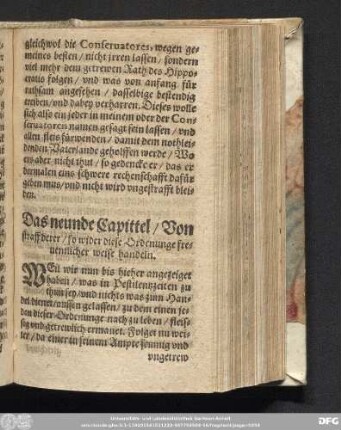 gleichwol die Conseruatores, wegen ge-
meines besten / nicht irren lassen / sondern
viel mehr dem getrewen Rath des Hippo-
cratis folgen / vnd was von anfang für
rathsam angesehen / dasselbige bestendig
treiben / vnd dabey verharren. Dieses wolle
sich also ein jeder in meinem oder der Con-
seruatoren namen gesagt sein lassen / vnd
allen fleis fürwenden / damit dem nothlei-
denden Vaterlande geholffen werde / Wo
ers aber nicht thut / so gedencke er / das er
dermalen eins schwere rechenschafft dafür
geben mus / vnd nicht wird vngestrafft blei-
ben.
Das neunde Capittel / Von
straff derer / so wider diese Ordenunge fre-
uentlicher weise handeln.
WEil wir nun bis hieher angezeiget
haben / was in Pestilentzzeiten zu
thun sey / vnd nichts was zum Han-
del dienet / aussen gelassen / zu dem einen je-
den dieser Ordenunge nach zu leben / fleis-
sig vnd getrewlich ermanet. Folget nu wei-
ter / da einer in seinem Ampte seumig vnd
vngetrew
Universitäts- und Landesbibliothek Sachsen-Anhalt
DFG